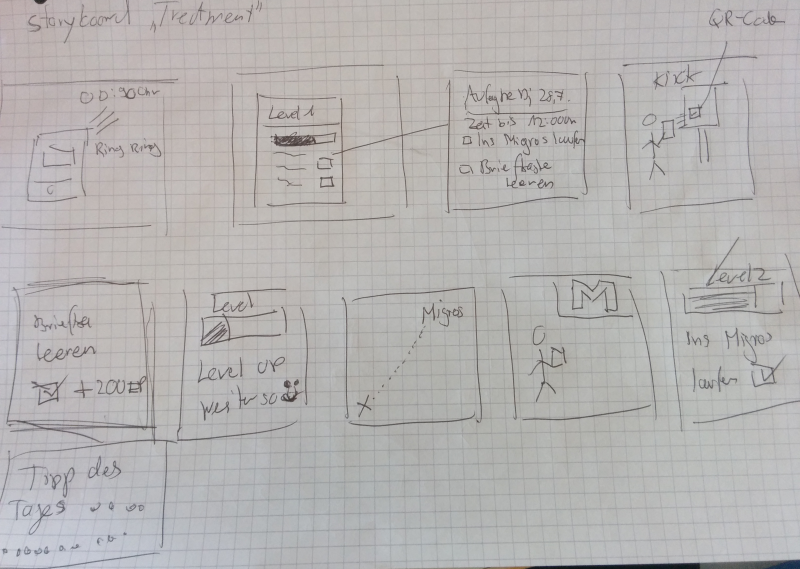 Storyboard „Treatment"
QR-Code
Ring Ring
Level 1
Aufgaben 28.7.
Zeit bis 12:00
Ins Migros laufen
Briefkaste
leeren
Klick
leeren
+200
Level
Level up
weiter so
Migros
M
Level 2
Ins Migros
laufen
Tipp des
Tages